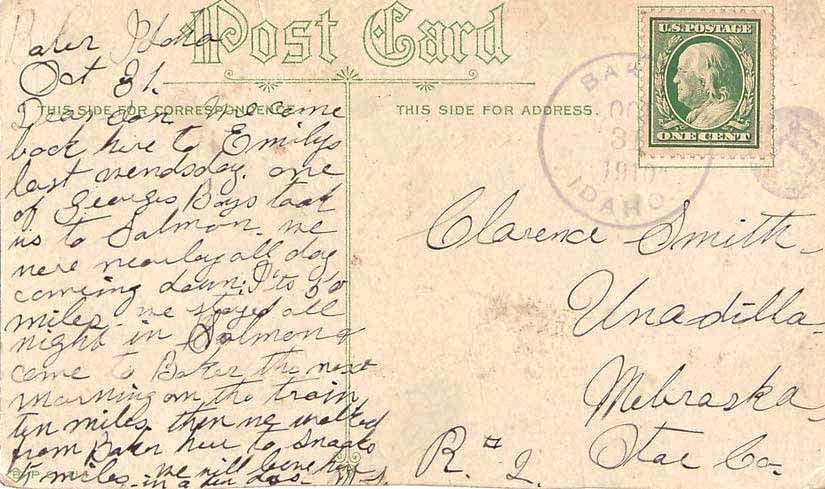 Post Card
Baker Idaho
Oct 31.
THIS SIDE FOR CORRESPONDENCE
THIS SIDE FOR ADDRESS.
Dear son we come
back here to Emilys
last wendsday. one
of Georges Boys took
us to Salmon. we
were nearly all day
coming down. I'ts 50
miles. we stayed all
night in Salmon &
come to Baker the next
morning on the train
ten miles. then we walked
from Baker here to
miles. we will leave here
in a few
U.S. POSTAGE
ONE CENT
BAK
OC
31
1910
IDAHO
Clarence Smith
Unadilla
Nebraska
Otoe Co.
R. # 2.